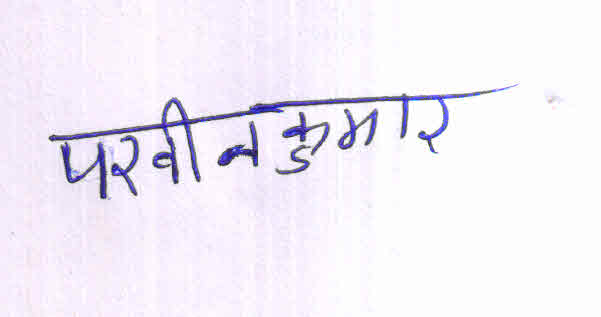 परवीन कुमार